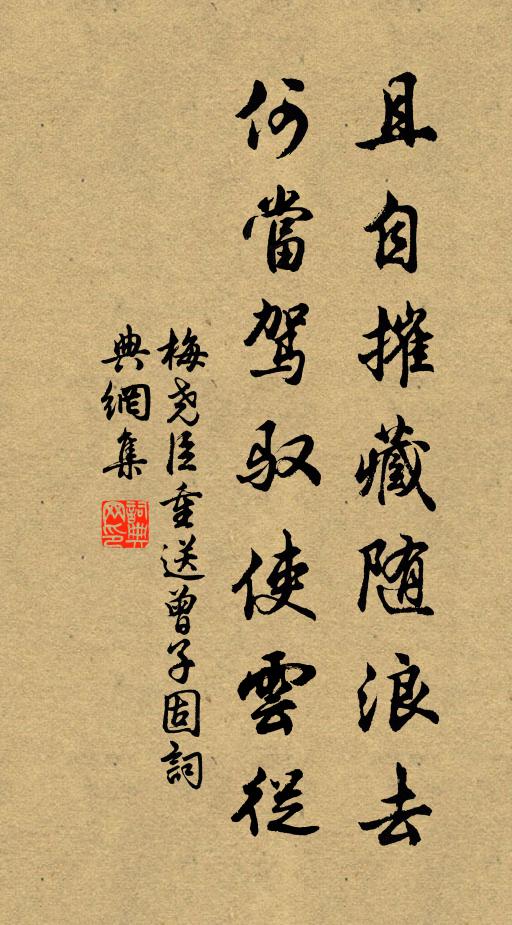 且自摧藏随浪去
何當駕驭使雲從
梅尧臣重送曾子固詞
典網集
詞典
网印